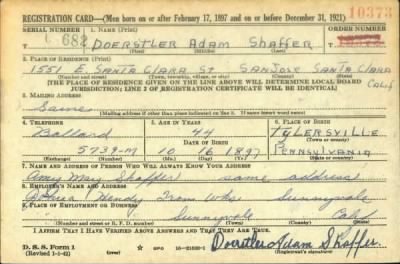 REGISTRATION CARD—(Men born on or after February 17, 1897 and on or before December 31, 1921)
10373
SERIAL NUMBER
1. NAME (Print)
ORDER NUMBER
682 DOERSTLER ADAM SHAFFER
(First) (Middle) (Last)
2. PLACE OF RESIDENCE (Print)
1551 E. SANTA CLARA ST SAN JOSE SANTA CLARA
CALIF
(Number and street) (Town, township, village, or city) (County) (State)
[THE PLACE OF RESIDENCE GIVEN ON THE LINE ABOVE WILL DETERMINE LOCAL BOARD
JURISDICTION; LINE 2 OF REGISTRATION CERTIFICATE WILL BE IDENTICAL]
3. MAILING ADDRESS
Same
(Mailing address if other than place indicated on line 2. If same insert word same)
4. TELEPHONE
5. AGE IN YEARS
6. PLACE OF BIRTH
Ballard
44
TYLERSVILLE
DATE OF BIRTH
(Town or county)
5739-M 10 16 1897 PENNSYLVANIA
(Exchange) (Number) (Mo.) (Day) (Yr.) (State or country)
7. NAME AND ADDRESS OF PERSON WHO WILL ALWAYS KNOW YOUR ADDRESS
Amy May Shaffer same address
8. EMPLOYER'S NAME AND ADDRESS
Joshua Hendy Iron Wks Sunnyvale
9. PLACE OF EMPLOYMENT OR BUSINESS
Sunnyvale Calif
(Number and street or R. F. D. number) (Town) (County) (State)
I AFFIRM THAT I HAVE VERIFIED ABOVE ANSWERS AND THAT THEY ARE TRUE.
D. S. S. Form 1
(Revised 1-1-42)
GPO 16—21630-1
Doerstler Adam Shaffer
(Registrant's signature)